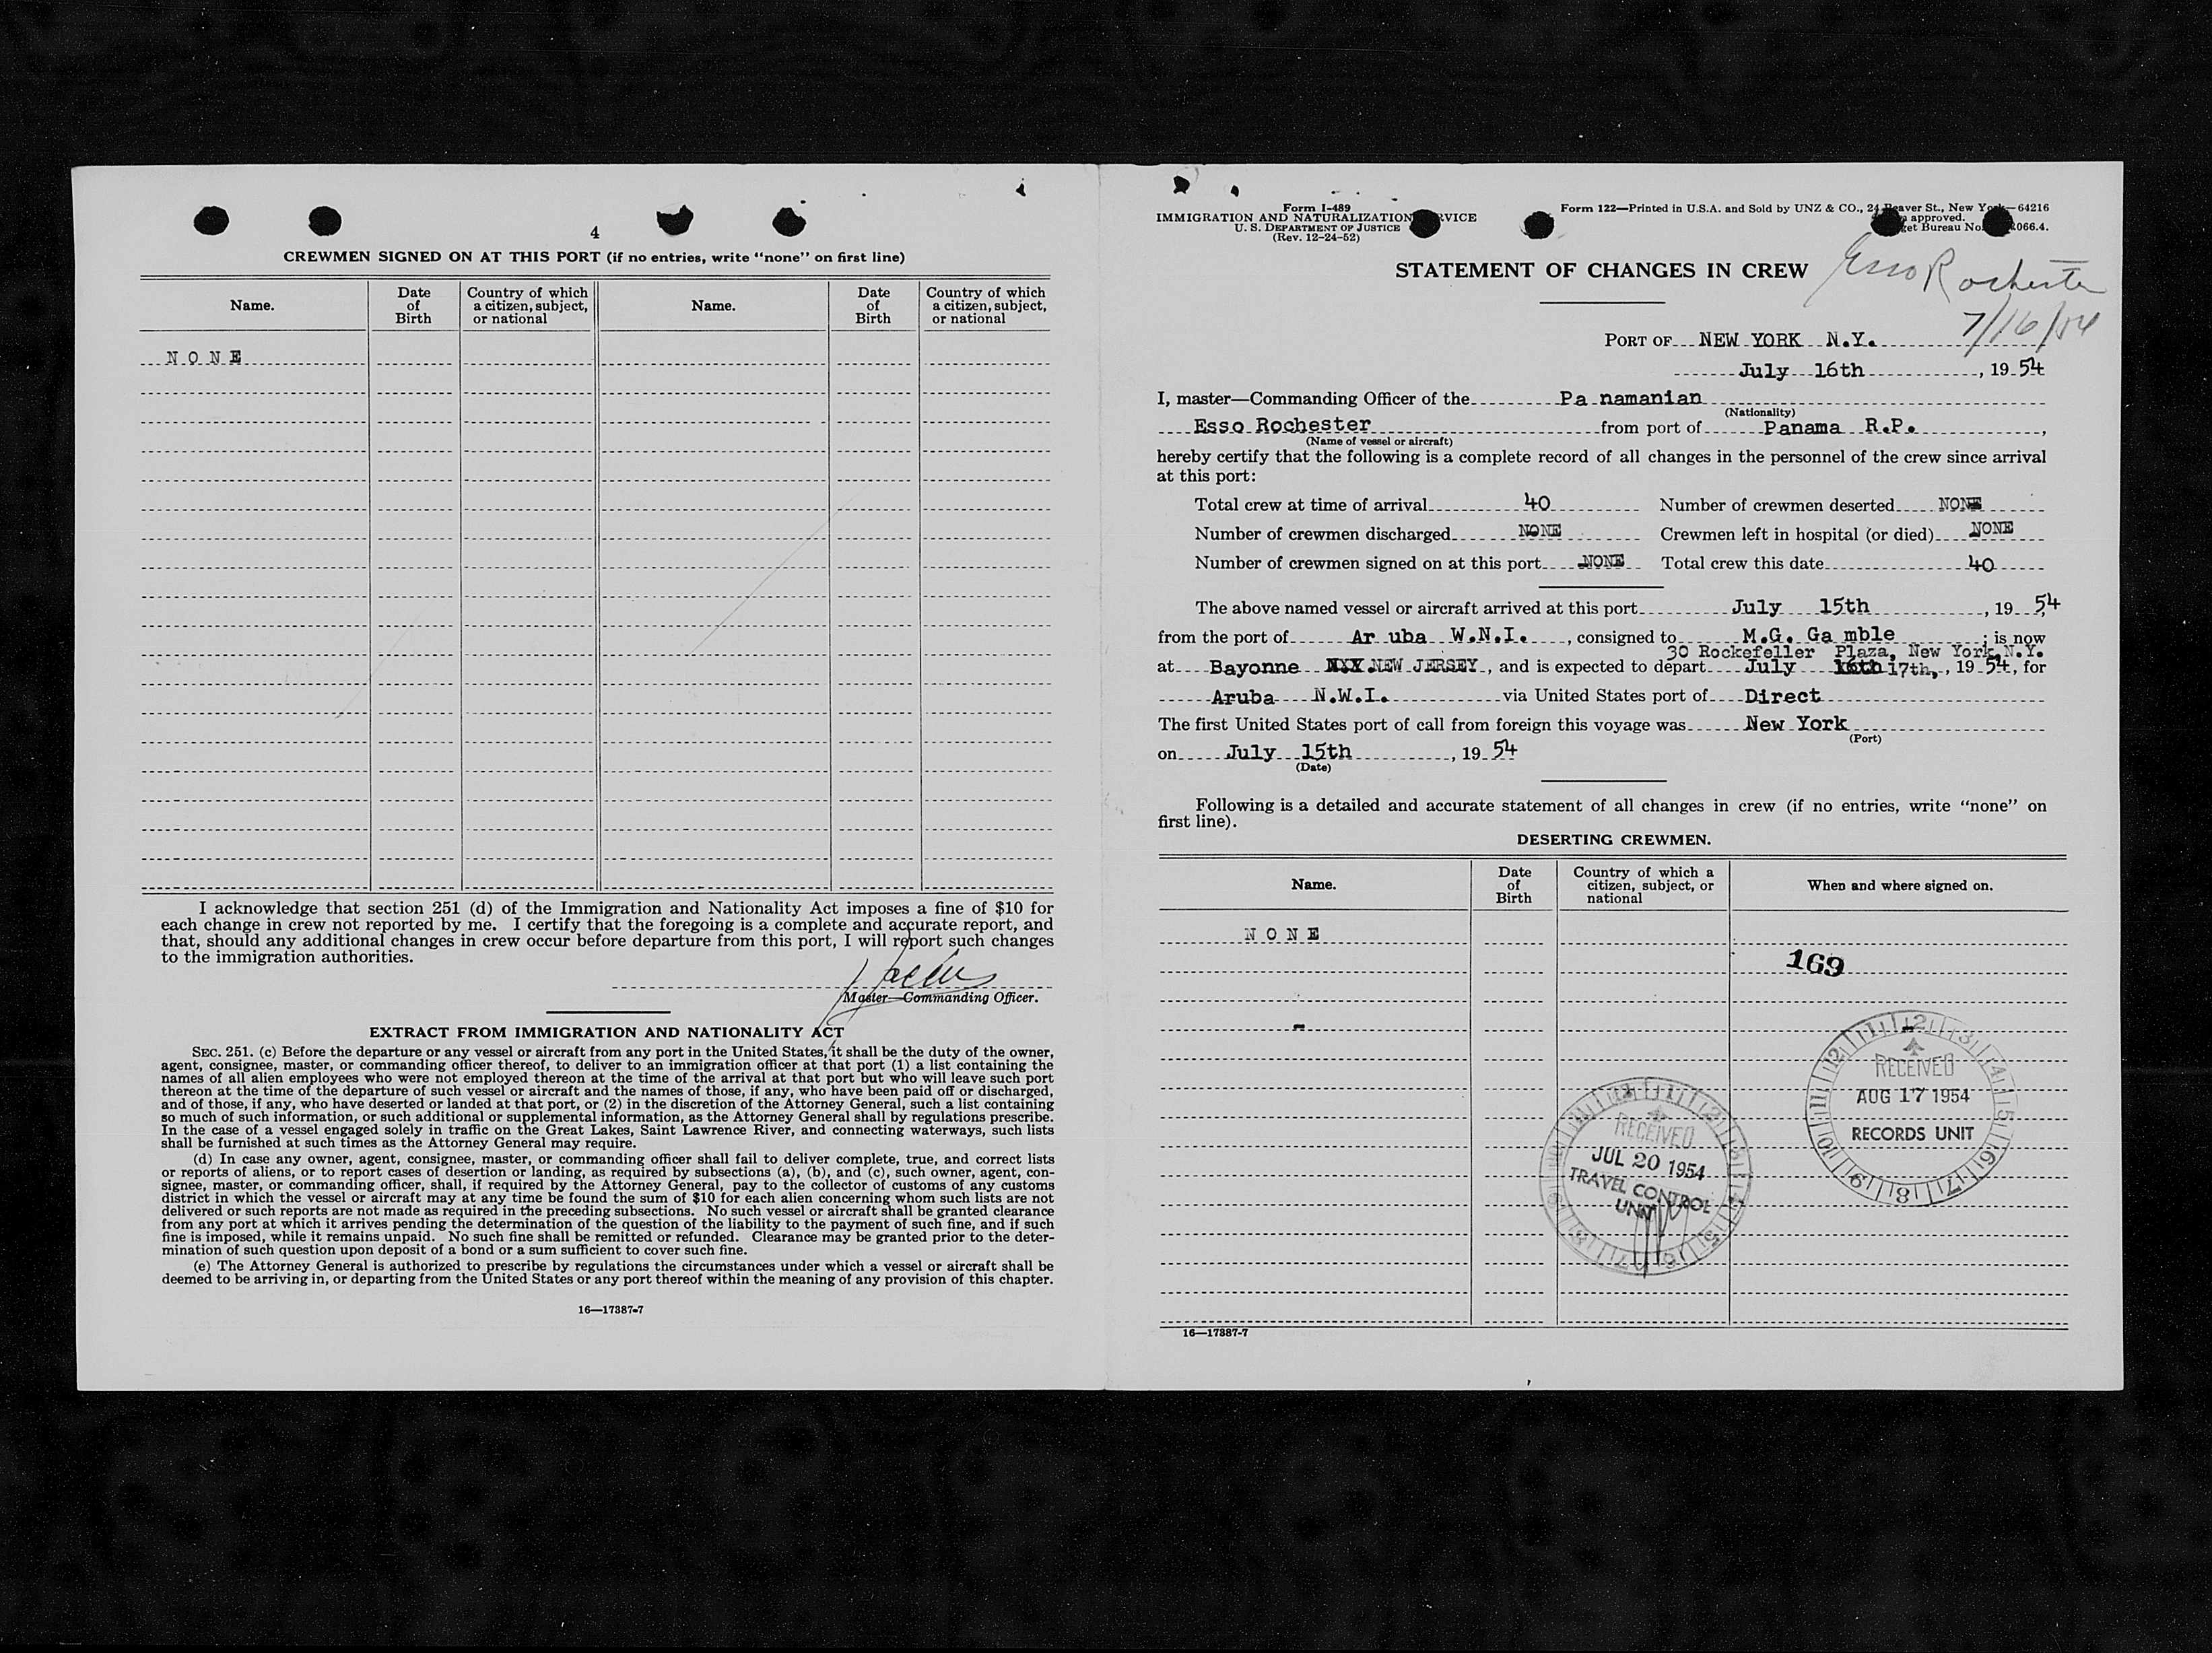 4
CREWMEN SIGNED ON AT THIS PORT (if no entries, write "none" on first line)
Name. Date of Birth Country of which a citizen, subject, or national Name. Date of Birth Country of which a citizen, subject, or national
NONE
I acknowledge that section 251 (d) of the Immigration and Nationality Act imposes a fine of $10 for
each change in crew not reported by me. I certify that the foregoing is a complete and accurate report, and
that, should any additional changes in crew occur before departure from this port, I will report such changes
to the immigration authorities.
Master—Commanding Officer.
EXTRACT FROM IMMIGRATION AND NATIONALITY ACT
SEC. 251. (c) Before the departure or any vessel or aircraft from any port in the United States, it shall be the duty of the owner,
agent, consignee, master, or commanding officer thereof, to deliver to an immigration officer at that port (1) a list containing the
names of all alien employees who were not employed thereon at the time of the arrival at that port but who will leave such port
thereon at the time of the departure of such vessel or aircraft and the names of those, if any, who have been paid off or discharged,
and of those, if any, who have deserted or landed at that port, or (2) in the discretion of the Attorney General, such a list containing
so much of such information, or such additional or supplemental information, as the Attorney General shall by regulations prescribe.
In the case of a vessel engaged solely in traffic on the Great Lakes, Saint Lawrence River, and connecting waterways, such lists
shall be furnished at such times as the Attorney General may require.
(d) In case any owner, agent, consignee, master, or commanding officer shall fail to deliver complete, true, and correct lists
or reports of aliens, or to report cases of desertion or landing, as required by subsections (a), (b), and (c), such owner, agent, con-
signee, master, or commanding officer, shall, if required by the Attorney General, pay to the collector of customs of any customs
district in which the vessel or aircraft may at any time be found the sum of $10 for each alien concerning whom such lists are not
delivered or such reports are not made as required in the preceding subsections. No such vessel or aircraft shall be granted clearance
from any port at which it arrives pending the determination of the question of the liability to the payment of such fine, and if such
fine is imposed, while it remains unpaid. No such fine shall be remitted or refunded. Clearance may be granted prior to the deter-
mination of such question upon deposit of a bond or a sum sufficient to cover such fine.
(e) The Attorney General is authorized to prescribe by regulations the circumstances under which a vessel or aircraft shall be
deemed to be arriving in, or departing from the United States or any port thereof within the meaning of any provision of this chapter.
16—17387-7
Form I-489
IMMIGRATION AND NATURALIZATION
U. S. DEPARTMENT OF JUSTICE
(Rev. 12-24-52)
Form 122—Printed in U.S.A. and Sold by UNZ & CO., 24 Beaver St., New York—64216
approved.
Budget Bureau No. 066.4.
STATEMENT OF CHANGES IN CREW
Esso Rochester
7/16/54
PORT OF NEW YORK N.Y.
July 16th, 1954
I, master—Commanding Officer of the Pa namanian
(Nationality)
Esso Rochester from port of Panama R.P.,
(Name of vessel or aircraft)
hereby certify that the following is a complete record of all changes in the personnel of the crew since arrival
at this port:
Total crew at time of arrival 40 Number of crewmen deserted NONE
Number of crewmen discharged NONE Crewmen left in hospital (or died) NONE
Number of crewmen signed on at this port NONE Total crew this date 40
The above named vessel or aircraft arrived at this port July 15th, 1954
from the port of Ar uba W.N.I., consigned to M.G. Ga mble; is now
30 Rockefeller Plaza, New York, N.Y.
at Bayonne NEW JERSEY, and is expected to depart July 17th, 1954, for
Aruba N.W.I. via United States port of Direct
The first United States port of call from foreign this voyage was New York
(Port)
on July 15th, 1954
(Date)
Following is a detailed and accurate statement of all changes in crew (if no entries, write "none" on
first line).
DESERTING CREWMEN.
Name. Date of Birth Country of which a citizen, subject, or national When and where signed on.
NONE
169
RECEIVED
AUG 17 1954
RECORDS UNIT
RECEIVED
JUL 20 1954
TRAVEL CONTROL
UNIT
16—17387-7